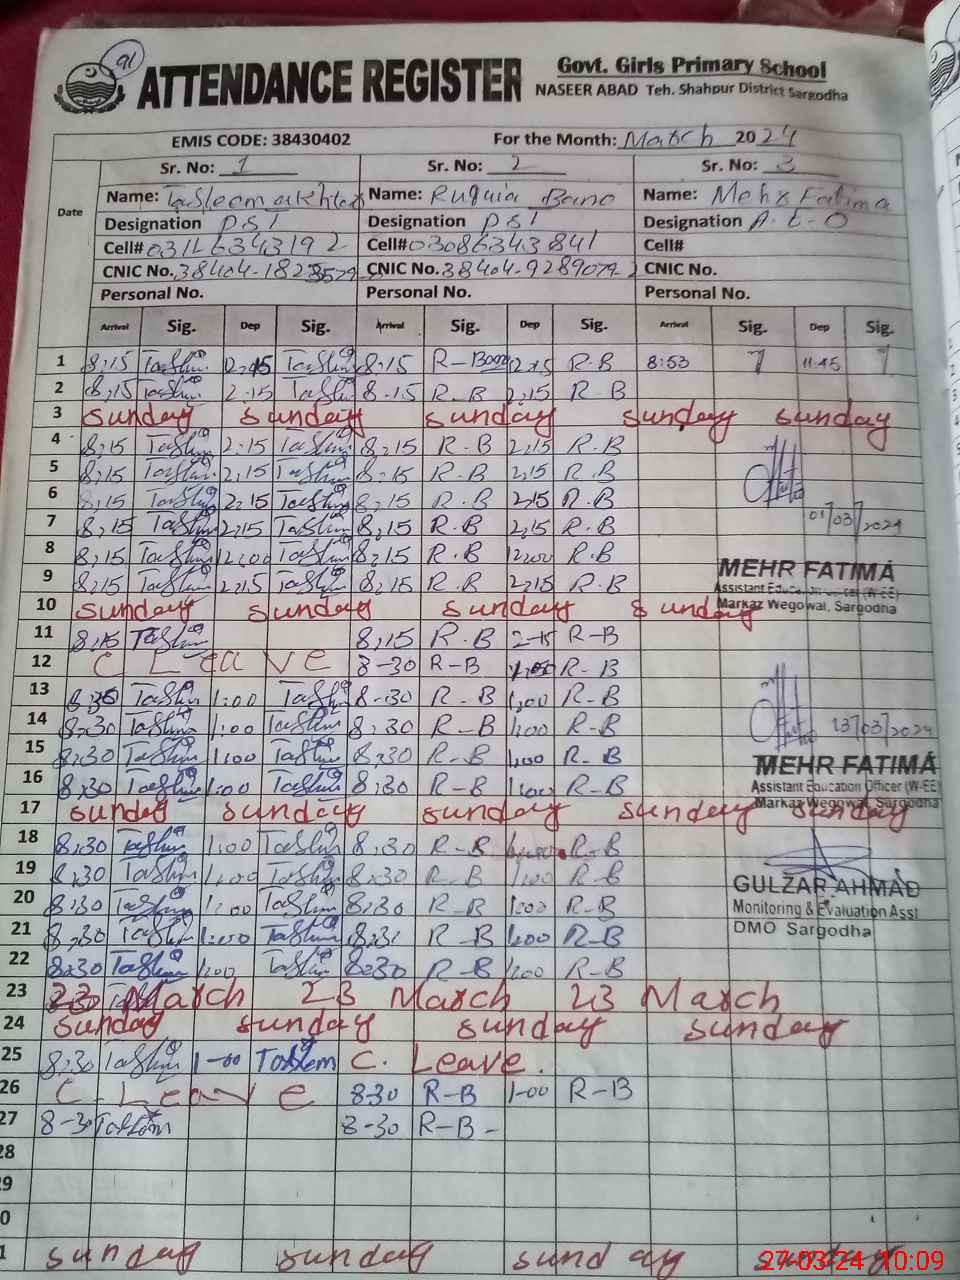 91
ATTENDANCE REGISTER
Govt. Girls Primary School
NASEER ABAD Teh. Shahpur District Sargodha
EMIS CODE: 38430402 For the Month: March 2024
Sr. No: 1 Sr. No: 2 Sr. No: 3
Date
Name: Tasleem akhtar Name: Ruquia Bano Name: Mehr Fatima
Designation PST Designation PST Designation A.E-O
Cell# 03116343192 Cell# 03086343841 Cell#
CNIC No. CNIC No. 38404-9289079-2 CNIC No.
Personal No. Personal No. Personal No.
Arrival Sig. Dep Sig. Arrival Sig. Dep Sig. Arrival Sig. Dep Sig.
1 8,15 Taslim 12,45 Taslim 8.15 R-Bano 12:15 R.B 8:53 11:45
2 8,15 Taslim 2:15 Taslim 8.15 R-B 2,15 R B
3 sunday sunday sunday sunday sunday
4 8,15 Taslim 2:15 Taslim 8,15 R-B 2,15 R.B
5 8,15 Taslim 2,15 Taslim 8,15 R.B 2,15 R.B
6 8,15 Taslim 2,15 Taslim 8,15 R.B 2,15 R.B
7 8,15 Taslim 2,15 Taslim 8,15 R.B 2,15 R.B
01/03/2024
8 8,15 Taslim 12,00 Taslim 8,15 R.B 12,00 R.B
9 8,15 Taslim 2,15 Taslim 8,15 R.B 2,15 R.B
MEHR FATIMA
Assistant Education Officer (W-EE)
Markaz Wegowal, Sargodha
10 sunday sunday sunday sunday
11 8,15 Taslim 8,15 R.B 2-15 R-B
12 C Leave 8-30 R-B 1,00 R-B
13 8,30 Taslim 1:00 Taslim 8-30 R-B 1,00 R-B
14 8,30 Taslim 1:00 Taslim 8,30 R-B 1,00 R-B
13/03/2024
15 8,30 Taslim 1:00 Taslim 8,30 R-B 1,00 R-B
16 8,30 Taslim 1:00 Taslim 8,30 R-B 1,00 R-B
MEHR FATIMA
Assistant Education Officer (W-EE)
Markaz Wegowal, Sargodha
17 sunday sunday sunday sunday sunday
18 8,30 Taslim 1:00 Taslim 8,30 R-B R-B
19 8,30 Taslim 1,00 Taslim 8,30 R-B 1,00 R-B
20 8,30 Taslim 1,00 Taslim 8,30 R-B 1,00 R-B
GULZAR AHMAD
Monitoring & Evaluation Asst
DMO Sargodha
21 8,30 Taslim 1:00 Taslim 8,30 R-B 1,00 R-B
22 8:30 Taslim 1,00 Taslim 8:30 R-B 1,00 R-B
23 23 March 23 March 23 March
24 sunday sunday sunday sunday
25 8,30 Taslim 1-00 Taslem C. Leave.
26 C. Leave 8-30 R-B 1-00 R-B
27 8-30 Taslem 8-30 R-B -
28
29
30
31 sunday sunday sunday sunday
27-03-24 10:09